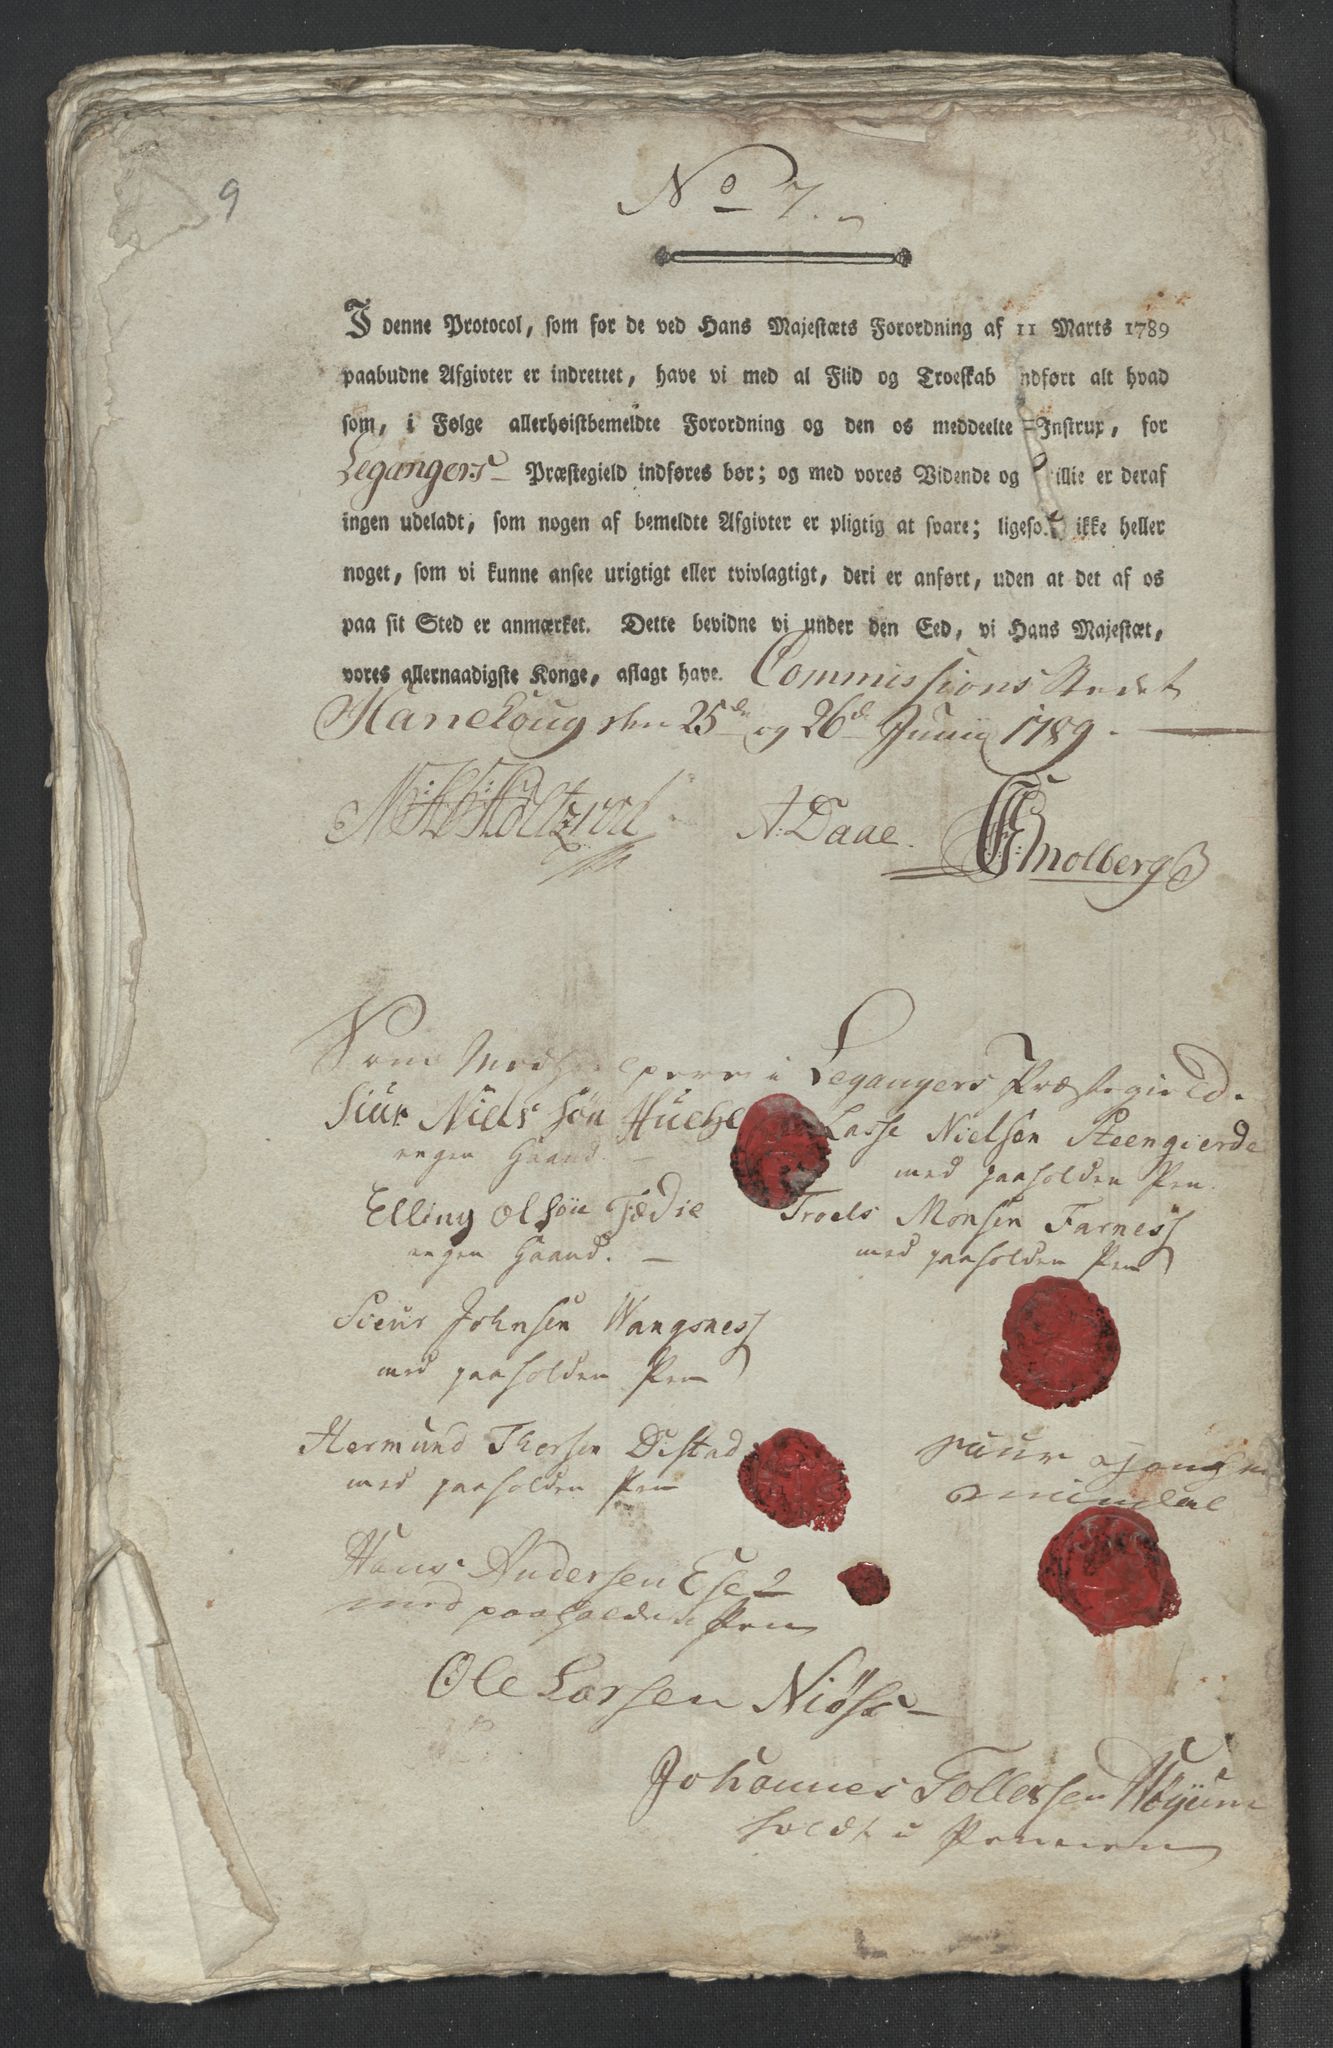 9
No 7.
I denne Protocol, som for de ved Hans Majestæts Forordning af 11 Marts 1789
paabudne Afgivter er indrettet, have vi med al Flid og Troeskab ndført alt hvad
som, i Følge allerhøistbemeldte Forordning og den os meddeelte Instrux, for
Legangers Præstegield indføres bør; og med vores Vidende og illie er deraf
ingen udeladt, som nogen af bemeldte Afgivter er pligtig at svare; ligeso ikke heller
noget, som vi kunne ansee urigtigt eller tvivlagtigt, deri er anført, uden at det af os
paa sit Sted er anmærket. Dette bevidne vi under den Eed, vi Hans Majestæt,
vores allernaadigste Konge, aflagt have. Commissions Stedet
Hanehoug den 25de og 26de Junii 1789.
A: Daae. Smolberg
Som Medhielpere i Legangers Præstegield.
Siur Niels søn Huehe Lasse Nielsen Steengierde
egen Haand. med paaholden Pen.
Elling Olsøn Fædie Troels Monsen Farness
egen Haand. med paaholden Pen
Sieur Johnsen Wangsness
med paaholden Pen
Hermund Thorsen Distad
med paaholden Pen
Hans Andersen Ese
med paaholden Pen
Ole Larsen Niøse
Johannes Tollefsen Høyum
holdt i Pennen